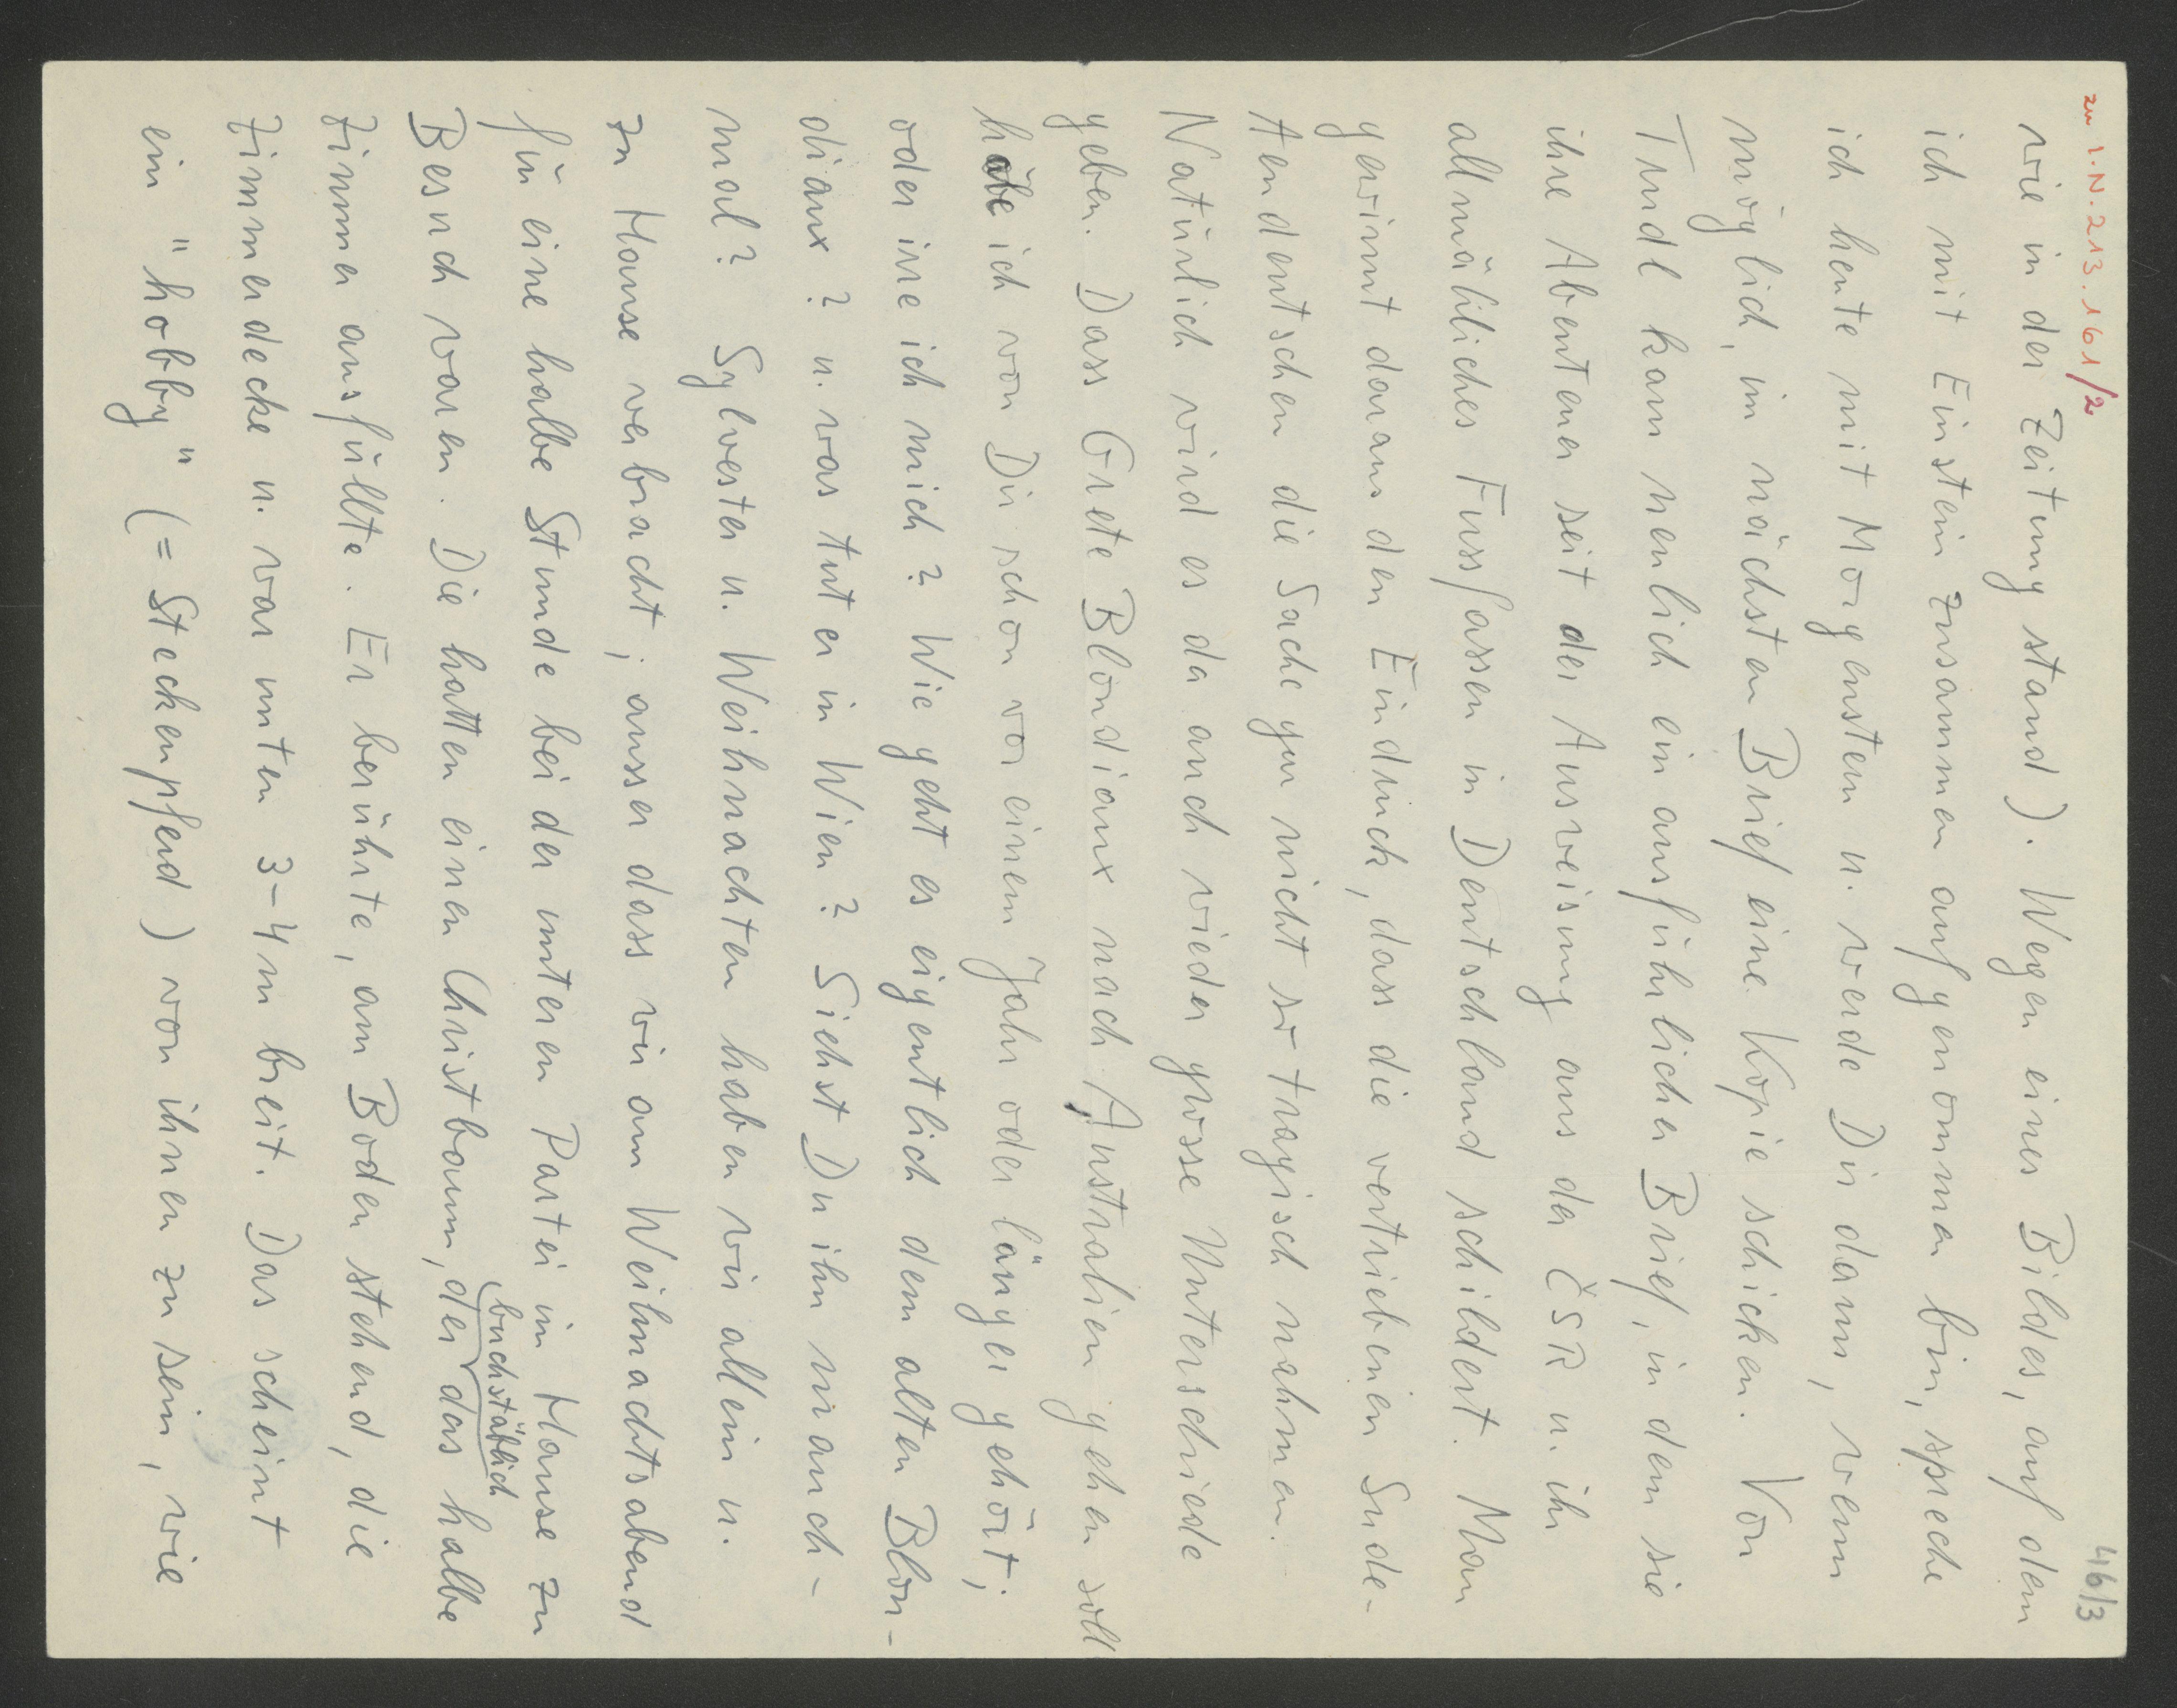 zu I.N. 213.161/2
46/3
wie in der Zeitung stand). Wegen eines Bildes, auf dem
ich mit Einstein zusammen aufgenommen bin, spreche
ich heute mit Morgenstern u. werde Dir dann, wenn
möglich, im nächsten Brief eine Kopie schicken. Von
Trudl kam neulich ein ausführlicher Brief, in dem sie
ihre Abenteuer seit der Ausweisung aus der ČSR u. ihr
allmähliches Fussfassen in Deutschland schildert. Man
gewinnt daraus den Eindruck, dass die vertriebenen Sude-
tendeutschen die Sache gar nicht so tragisch nehmen.
Natürlich wird es da auch wieder grosse Unterschiede
geben. Dass Grete Blondiaux nach Australien gehen soll
habe ich von Dir schon vor einem Jahr oder länger gehört;
oder irre ich mich? Wie geht es eigentlich dem alten Blon-
diaux? u. was tut er in Wien? Siehst Du ihn manch-
mal? Sylvester u. Weihnachten haben wir allein u.
zu Hause verbracht; ausser dass wir am Weihnachtsabend
für eine halbe Stunde bei der unteren Partei im Hause zu
Besuch waren. Die hatten einen Christbaum, der buchstäblich das halbe
Zimmer ausfüllte. Er berührte, am Boden stehend, die
Zimmerdecke u. war unten 3-4 m breit. Das scheint
ein "hobby" (= Steckenpferd) von ihnen zu sein, wie